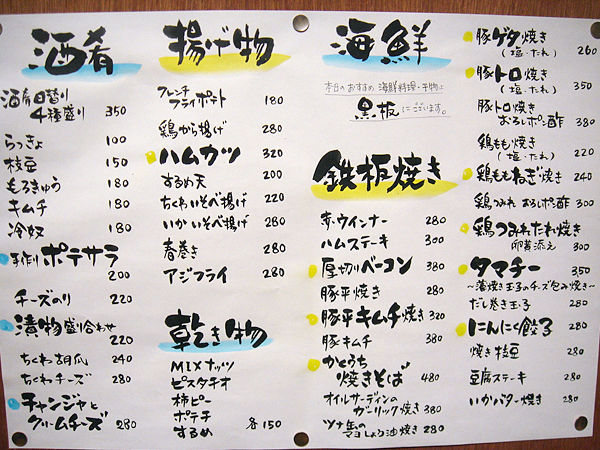 酒肴
酒肴日替り
4種盛り 350
らっきょ 100
枝豆 150
もろきゅう 180
キムチ 180
冷奴 180
手作りポテサラ
200
チーズのり 220
漬物盛り合わせ
220
ちくわ胡瓜 240
ちくわチーズ 280
チャンジャと
クリームチーズ 280
揚げ物
フレンチ
フライポテト 180
鶏から揚げ 280
ハムカツ 320
するめ天 200
ちくわいそべ揚げ 220
いかいそべ揚げ 280
春巻き 280
アジフライ 280
乾き物
MIXナッツ
ピスタチオ
柿ピー
ポテチ
するめ 各150
海鮮
本日のおすすめ 海鮮料理・干物は
黒板にございます。
鉄板焼き
赤・ウインナー 280
ハムステーキ 300
厚切りベーコン 380
豚平焼き 280
豚平キムチ焼き 320
豚キムチ 380
かとうち
焼きそば 480
オイルサーディンの
ガーリック焼き 380
ツナ缶の
マヨしょう油焼き 280
豚ゲタ焼き
(塩・たれ) 260
豚トロ焼き
(塩・たれ) 350
豚トロ焼き
おろしポン酢 380
鶏もも焼き
(塩・たれ) 220
鶏ももねぎ焼き 240
鶏つみれ おろしポン酢 300
鶏つみれたれ焼き
卵黄添え 300
タマチー 350
～薄焼き玉子のチーズ包み焼き～
だし巻き玉子 280
にんにく餃子 280
焼き枝豆 280
豆腐ステーキ 280
いかバター焼き 280